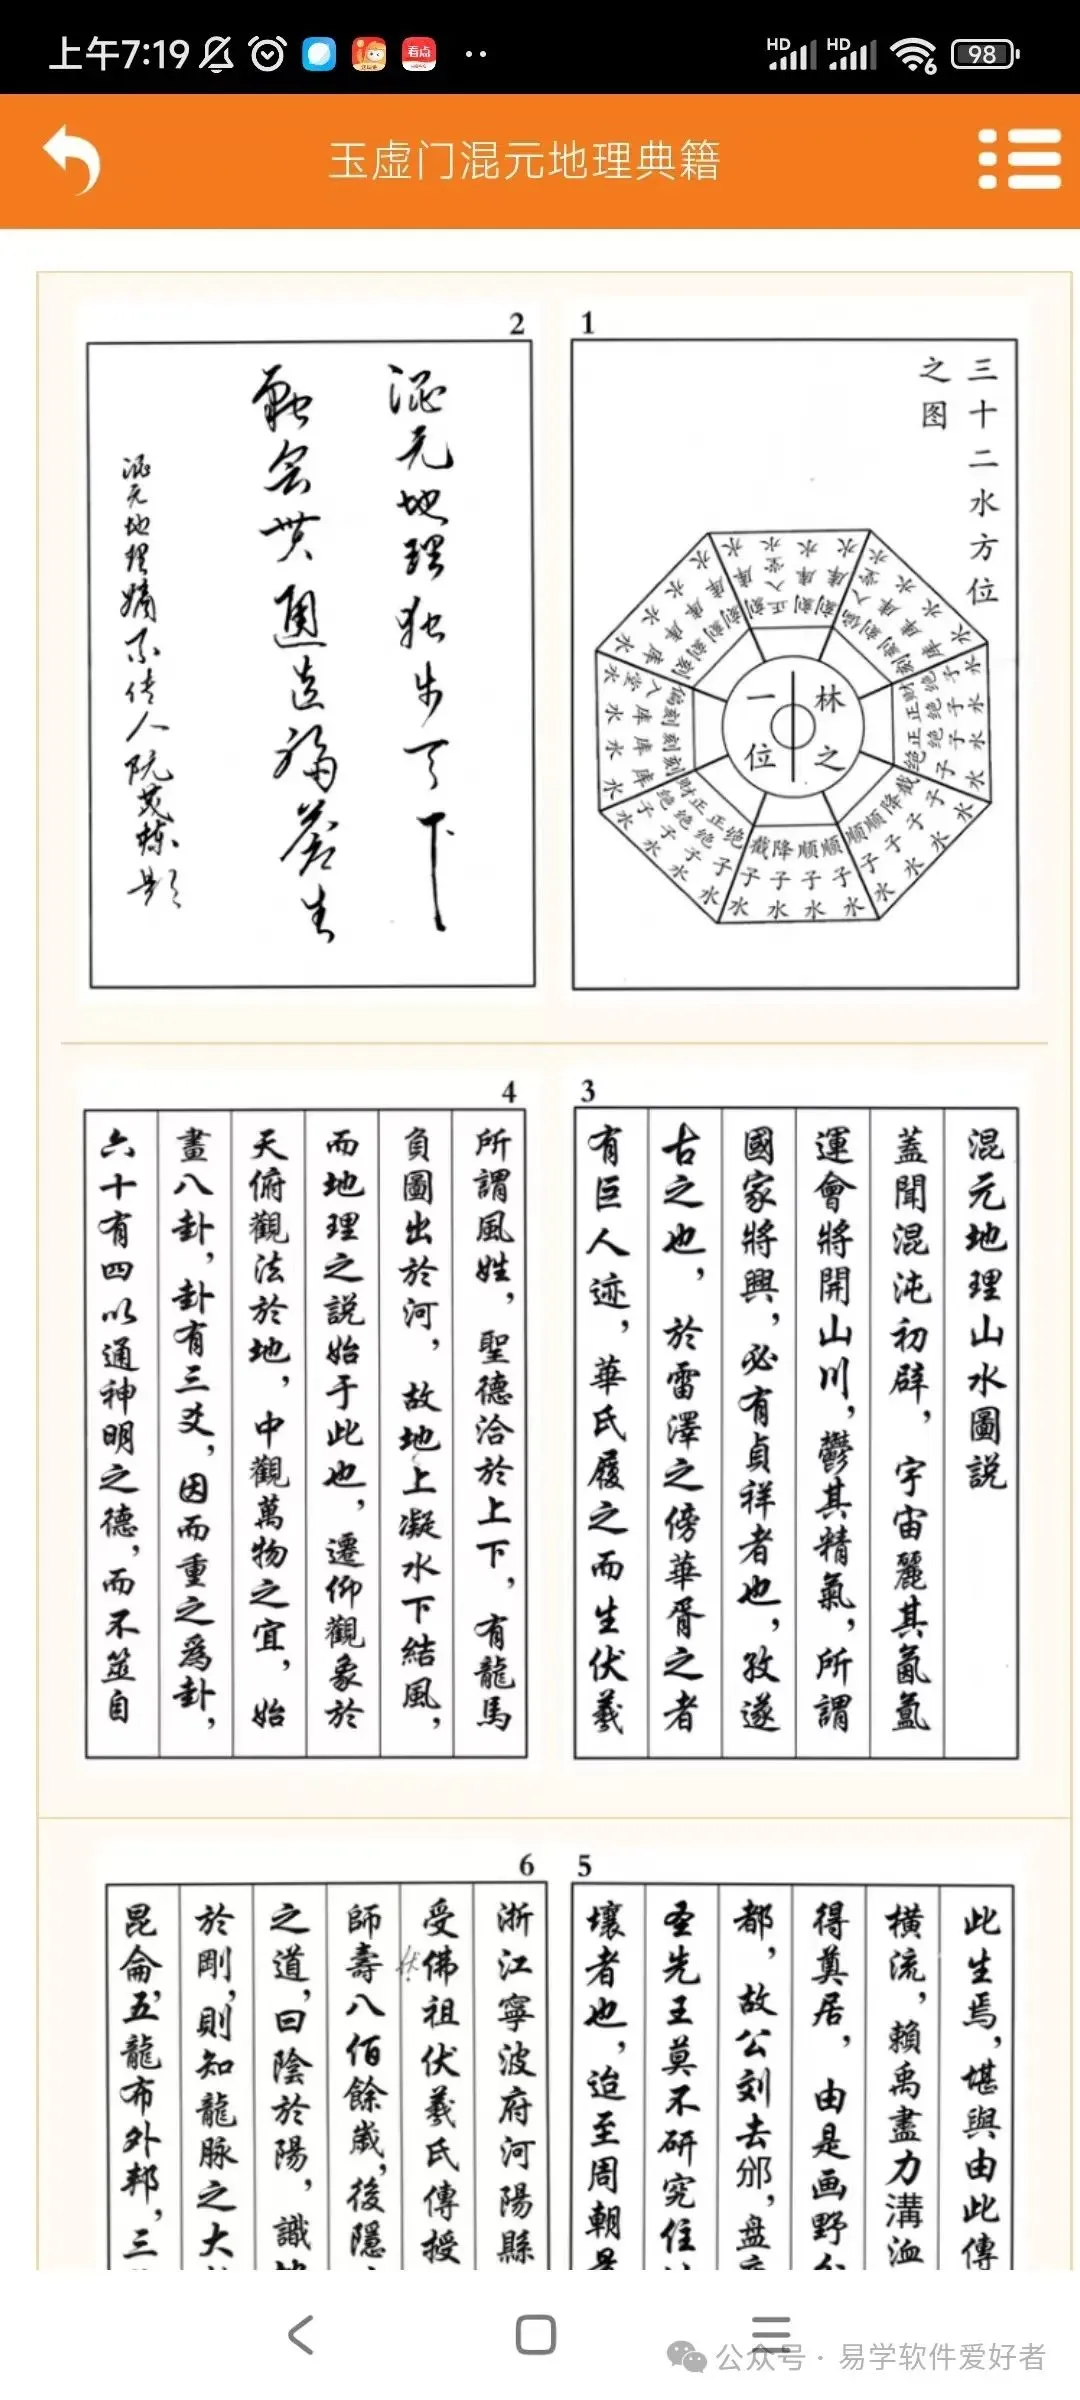 上午7:19
看点
HD HD 6 98
玉虚门混元地理典籍
1
三十二水方位
之图
林之
一位
2
混元地理独步天下
融会贯通造福苍生
混元地理嫡系传人阮茂栋题
3
混元地理山水圖説
蓋聞混沌初辟，宇宙麗其氤氳
運會將開山川，鬱其精氣，所謂
國家將興，必有貞祥者也，孜遂
古之也，於雷澤之傍華胥之者
有巨人迹，華氏履之而生伏羲
4
所謂風姓，聖德洽於上下，有龍馬
負圖出於河，故地上凝水下結風，
而地理之説始于此也，遷仰觀象於
天俯觀法於地，中觀萬物之宜，始
畫八卦，卦有三爻，因而重之爲卦，
六十有四以通神明之德，而不筮自
5
此生焉，堪與由此傳
横流，賴禹盡力溝洫
得奠居，由是画野
都，故公刘去邠，盘
圣先王莫不研究住
壤者也，迨至周朝
6
浙江寧波府河陽縣
受佛祖伏羲氏傳授
伏
師壽八佰餘嵗，後隱
之道，曰陰於陽，識
於剛，則知龍脉之大
昆侖五龍布外邦，三
公众号 · 易学软件爱好者